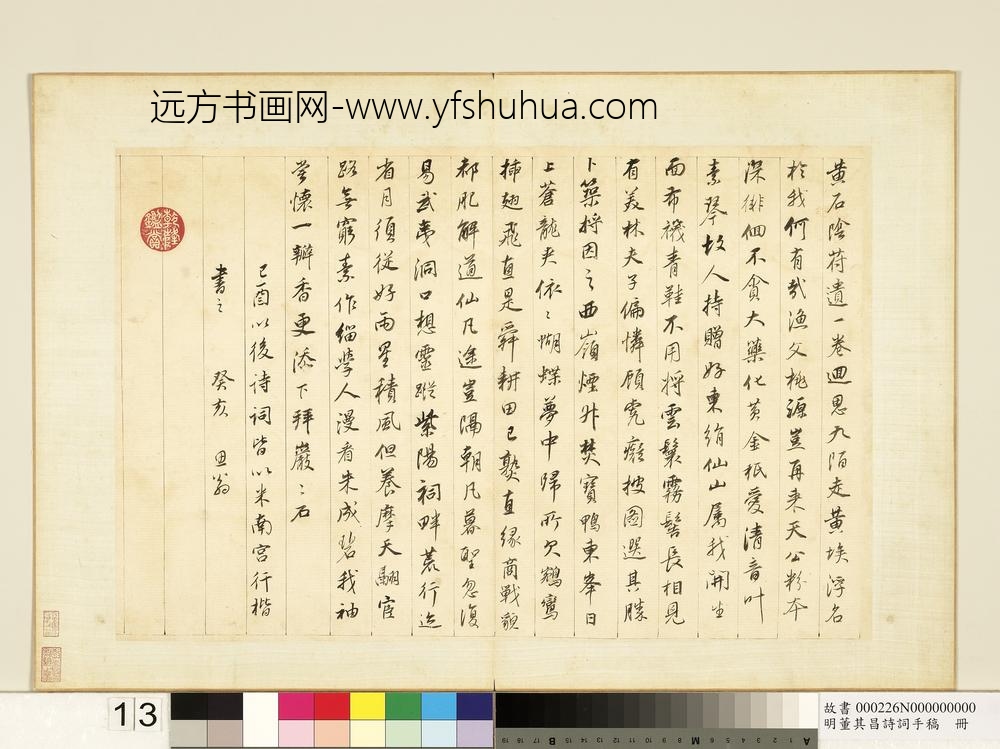 远方书画网-www.yfshuhua.com
黄石陰符遺一卷迴思九陌走黄埃浮名
於我何有哉漁父桃源豈再来天公粉本
深徘徊不貪大藥化黄金祇愛清音叶
素琴故人持贈好東絹仙山属我開生
面布襪青鞋不用将雲鬟霧髻長相見
有美林夫子偏憐顧虎癡披圖選其勝
卜築将因之西嶺煙外焚寶鴨東峯日
上蒼龍夾依ミ蝴蝶夢中歸所欠鷄鸞
挿翅飛直是舜耕田已熟直緣商戰觀
都肥解道仙凡途豈隔朝凡暮聖忽復
易武夷洞口想靈蹤紫陽祠畔荒行迹
省月須從好雨星積風但養摩天翮宦
路無窮素作緇學人漫看朱成碧我袖
嘗懷一瓣香更添下拜巖ミ石
己酉以後诗词皆以米南宫行楷
書之 癸亥 思翁
乾隆鑑賞
13
故書 000226N000000000
明董其昌詩詞手稿 冊